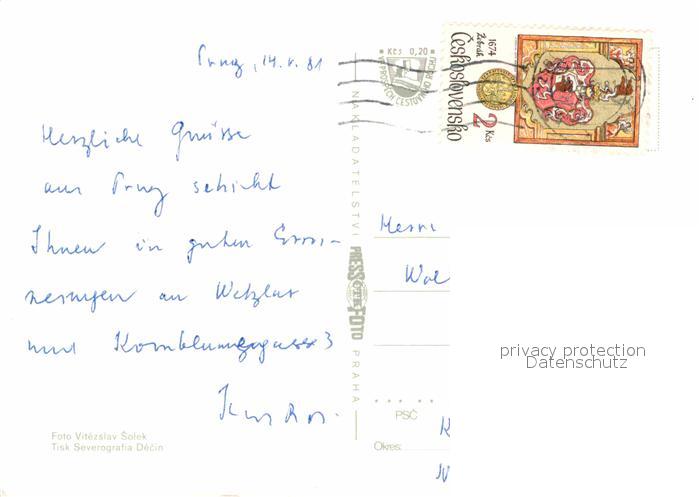 Prag, 14. V. 81
Herzliche Grüsse
aus Prag schickt
Ihnen in guten Erin-
nerungen an Wetzlar
und Kornblumengasse 3
Herrn
Wal
K
N
Kčs 0,20
1674
Žebrák
Československo
2 Kčs
NAKLADATELSTVÍ
PRESSFOTO
PRAHA
PSČ
Okres:
Foto Vítězslav Šolek
Tisk Severografia Děčín
privacy protection
Datenschutz